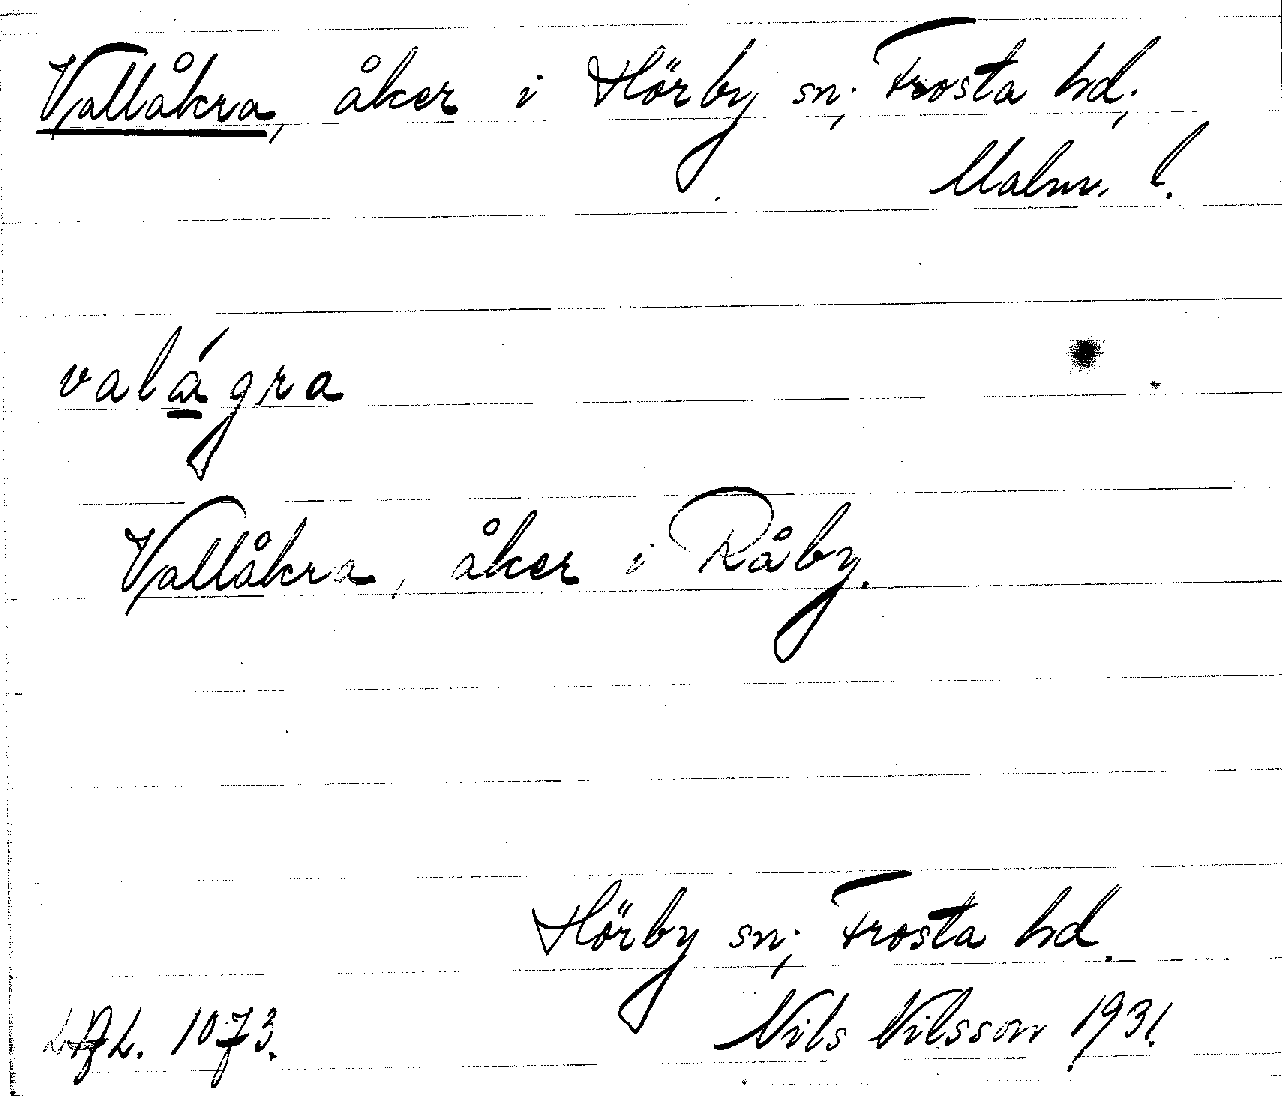 Vallåkra, åker i Hörby sn, Frosta hd,
Malm. l.
valágra
Vallåkra, åker i Råby.
Hörby sn, Frosta hd.
Nils Nilsson 1931.
LAL. 1073.